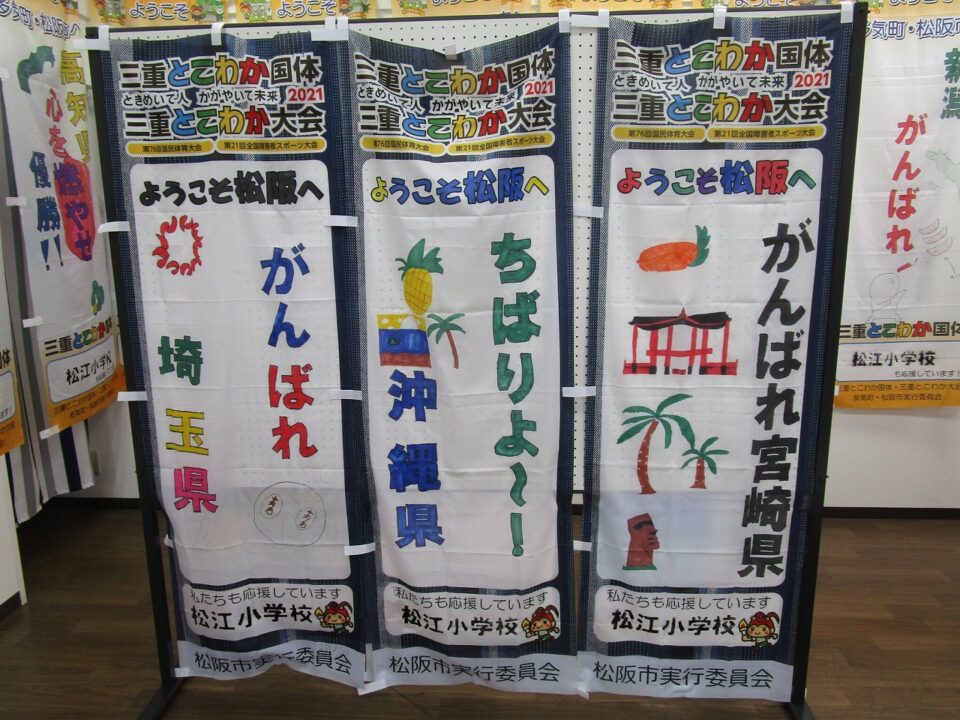 ようこそ
ようこそ
三重とこわか国体
ときめいて人 かがやいて未来 2021
三重とこわか大会
第76回国民体育大会 第21回全国障害者スポーツ大会
ようこそ松阪へ
がんばれ
埼玉県
私たちも応援しています
松江小学校
松阪市実行委員会
三重とこわか国体
ときめいて人 かがやいて未来 2021
三重とこわか大会
第76回国民体育大会 第21回全国障害者スポーツ大会
ようこそ松阪へ
ちばりよ〜!
沖縄県
私たちも応援しています
松江小学校
松阪市実行委員会
三重とこわか国体
ときめいて人 かがやいて未来 2021
三重とこわか大会
第76回国民体育大会 第21回全国障害者スポーツ大会
ようこそ松阪へ
がんばれ宮崎県
私たちも応援しています
松江小学校
松阪市実行委員会
多気町・松阪市へ
高知県
心を燃やせ
優勝!!
三重とこわか国体
松江小学校
三重とこわか国体・三重とこわか大会
多気町・松阪市
実行委員会
多気町・松阪市
新潟
がんばれ!
三重とこわか国体
松江小学校
も応援しています!
三重とこわか国体・三重とこわか大会
多気町・松阪市実行委員会